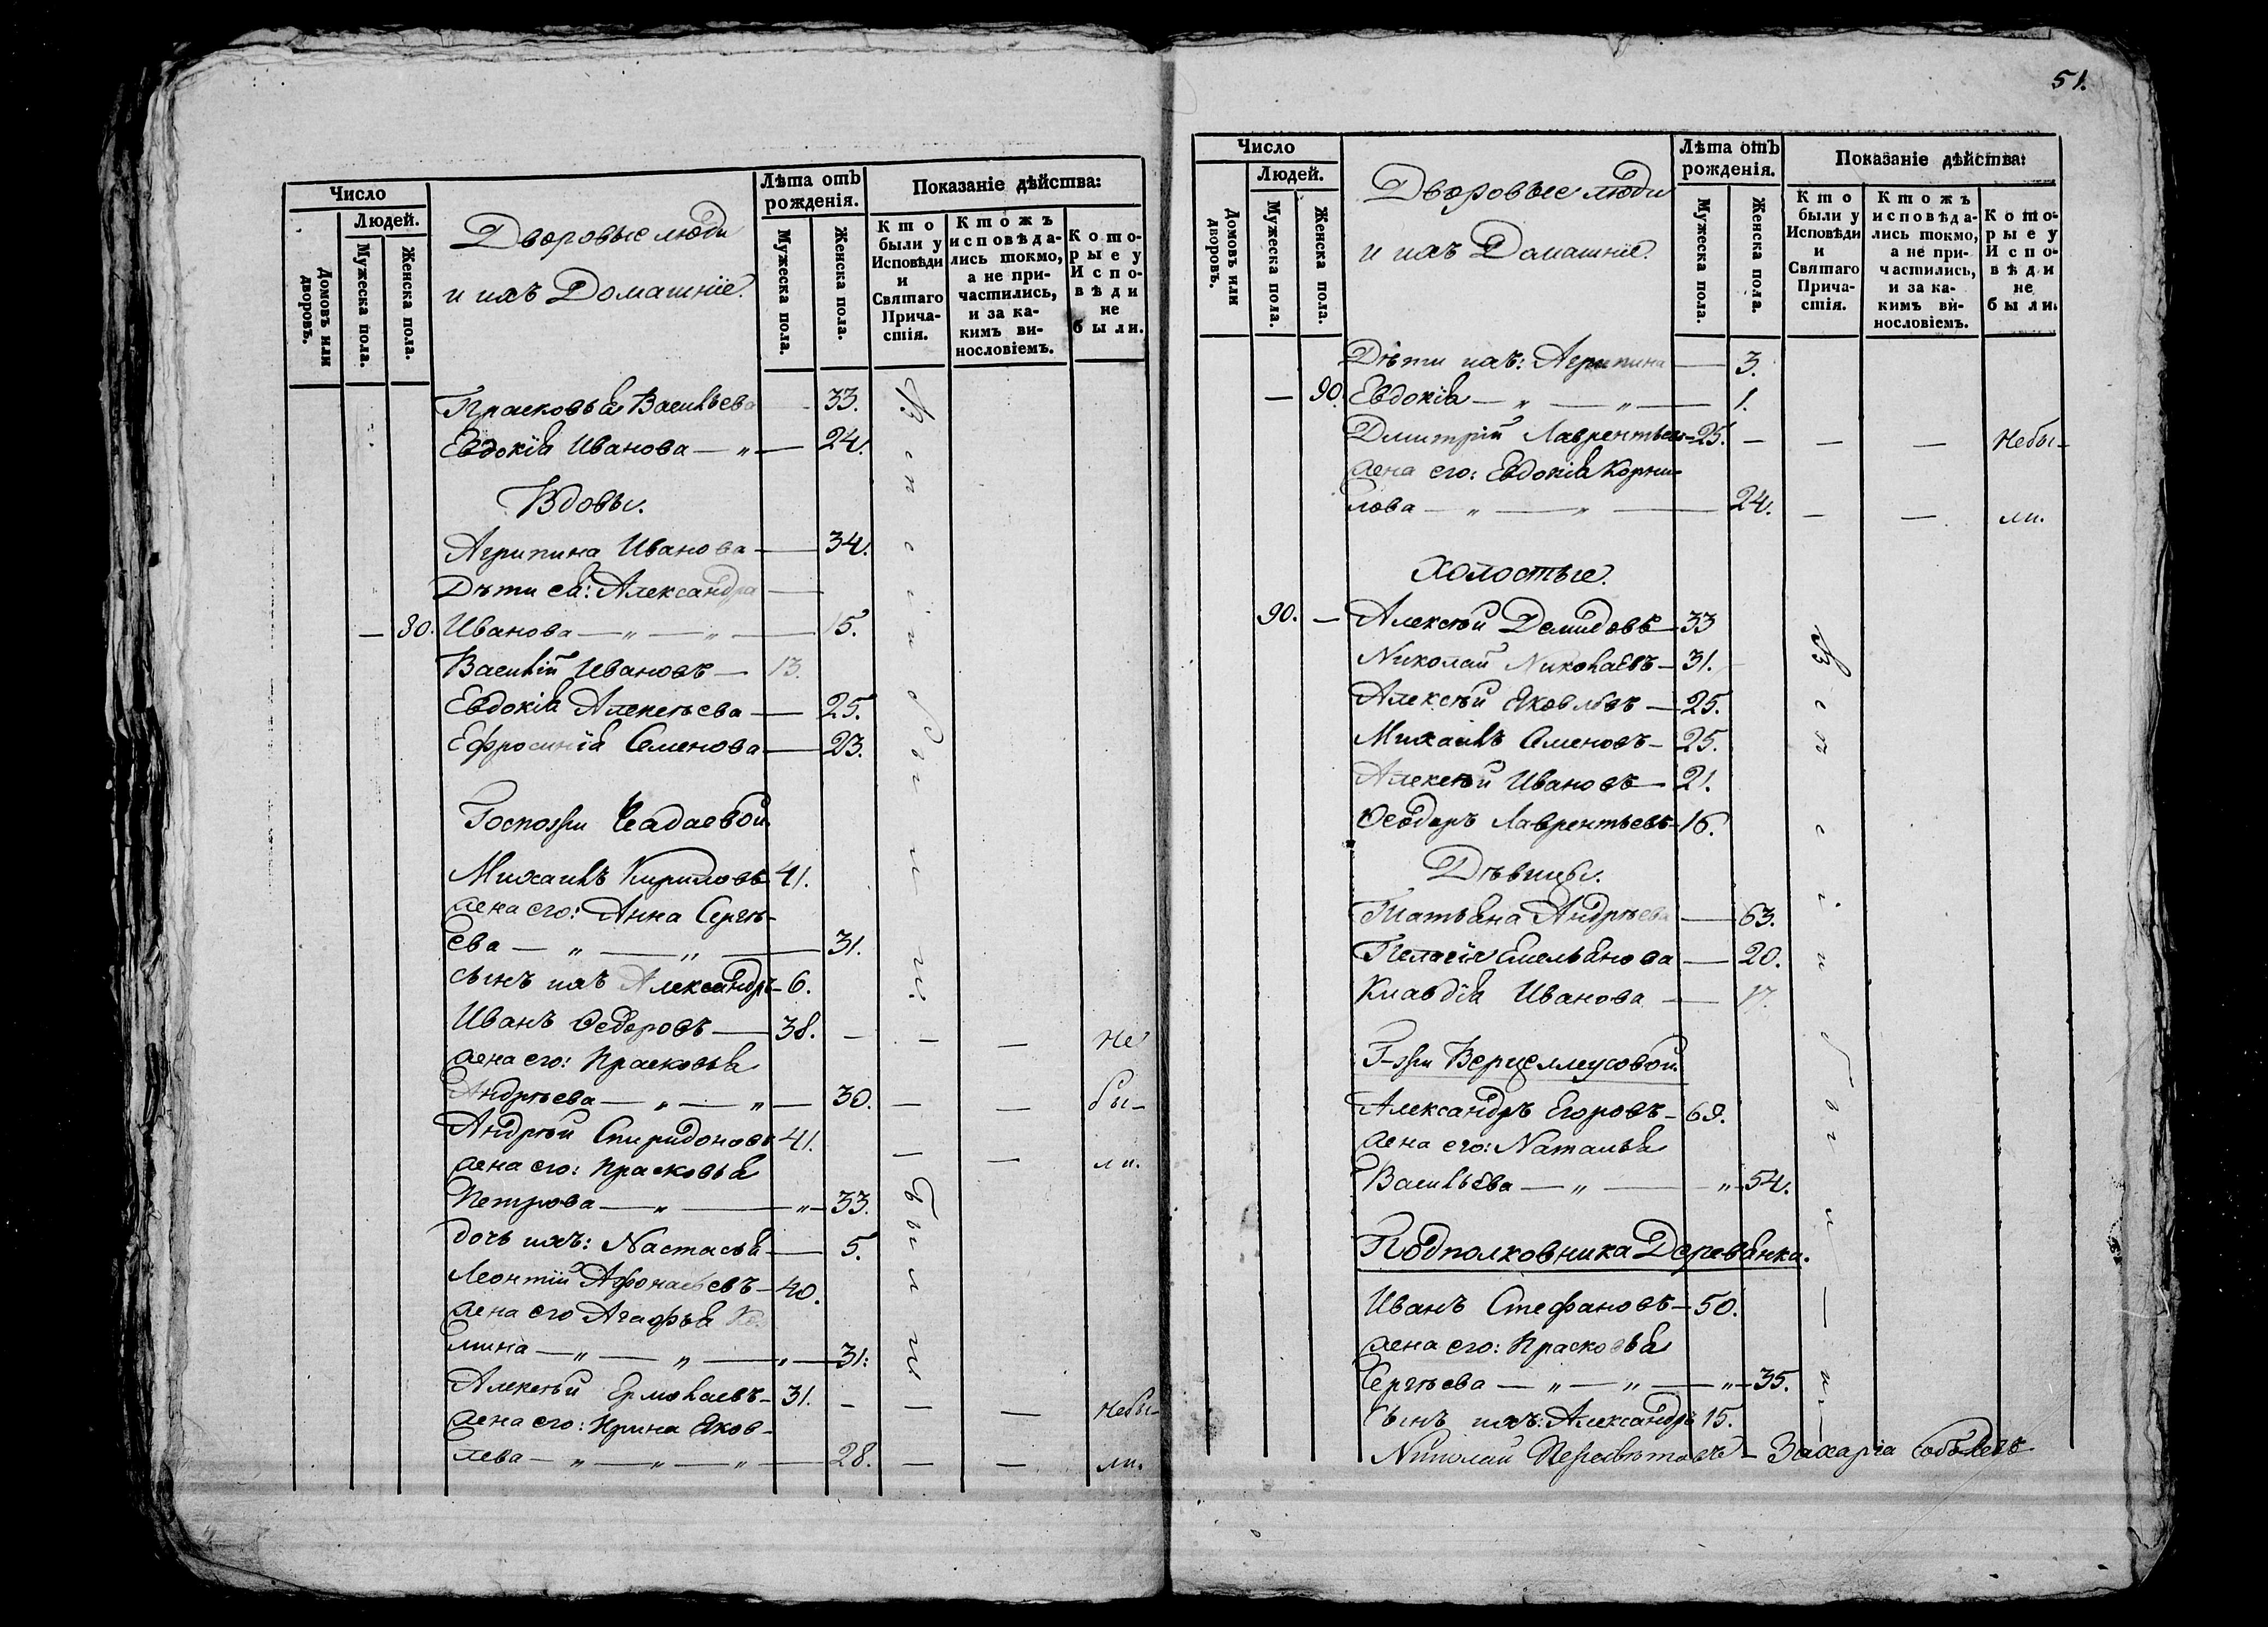 Число
Людей.
Домовъ или дворовъ.
Мужеска пола.
Женска пола.
Дворовые люди
и ихъ Домашніе.
Лѣта отъ рожденія.
Мужеска пола.
Женска пола.
Показаніе дѣйства:
Кто были у Исповѣди и Святаго Причастія.
Ктожъ исповѣдались токмо, а не причастились, и за какимъ винословіемъ.
Которые у Исповѣди не были.
Прасковья Васильева 33.
Евдокія Иванова — „ — 24.
Вдовы.
Агрипина Иванова — 34.
Дѣти ея: Александра —
— 80. Иванова — „ — „ — 15.
Василій Ивановъ — 13.
Евдокія Алексѣева — 25.
Ефросинія Семенова — 23.
Госпожи Чадаевой.
Михаилъ Кириловъ 41.
жена его: Анна Сергѣ-
ева — „ — „ — 31.
сынъ ихъ Александръ 6.
Иванъ Ѳедоровъ — 38. — — — не
жена его: Прасковья
Андрѣева — „ — „ — 30. — — бы-
Андрѣй Спиридоновъ 41. — — ли.
жена его: Прасковья
Петрова — „ — „ — 33.
дочь ихъ: Настасья — 5.
Леонтій Афонасьевъ — 40.
жена его Агафья
мина — „ — „ — „ — 31.
Алексѣй Ермолаевъ — 31. — — — небы-
жена его: Ирина Яков-
лева — „ — „ — „ — 28. — — ли.
51.
Число
Людей.
Домовъ или дворовъ.
Мужеска пола.
Женска пола.
Дворовые люди
и ихъ Домашніе.
Лѣта отъ рожденія.
Мужеска пола.
Женска пола.
Показаніе дѣйства:
Кто были у Исповѣди и Святаго Причастія.
Ктожъ исповѣдались токмо, а не причастились, и за какимъ винословіемъ.
Которые у Исповѣди не были.
Дѣти ихъ: Агрипина — 3.
— 90. Евдокія — „ — „ — 1.
Дмитрій Лаврентьевъ — 25. — — — небы-
жена его: Евдокія Корни-
лова — „ — „ — 24. — — ли.
Холостые.
90. — Алексѣй Демидовъ — 33
Николай Николаевъ — 31.
Алексѣй Яковлевъ — 25.
Михаилъ Семеновъ — 25.
Алексѣй Ивановъ — 21.
Ѳеодоръ Лаврентьевъ — 16.
Дѣвицы.
Татьяна Андрѣева — 63.
Пелагія Емельянова — 20.
Клавдія Иванова — 17.
Александръ Егоровъ — 69.
жена его: Наталья
Васильева — „ — „ — 54.
Подполковника Деревянка.
Иванъ Стефановъ — 50.
жена его: Прасковья
Сергѣева — „ — „ — „ — 35.
Сынъ ихъ: Александръ 15.